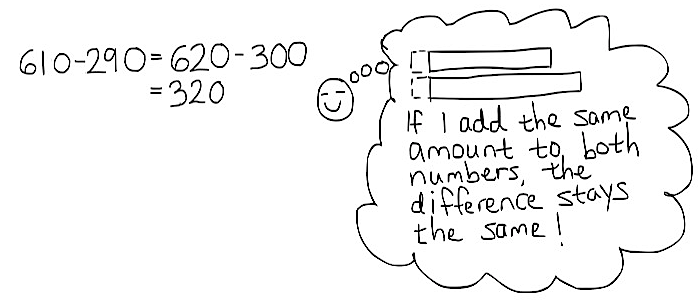 610-290=620-300
=320
If I add the same
amount to both
numbers, the
difference stays
the same!